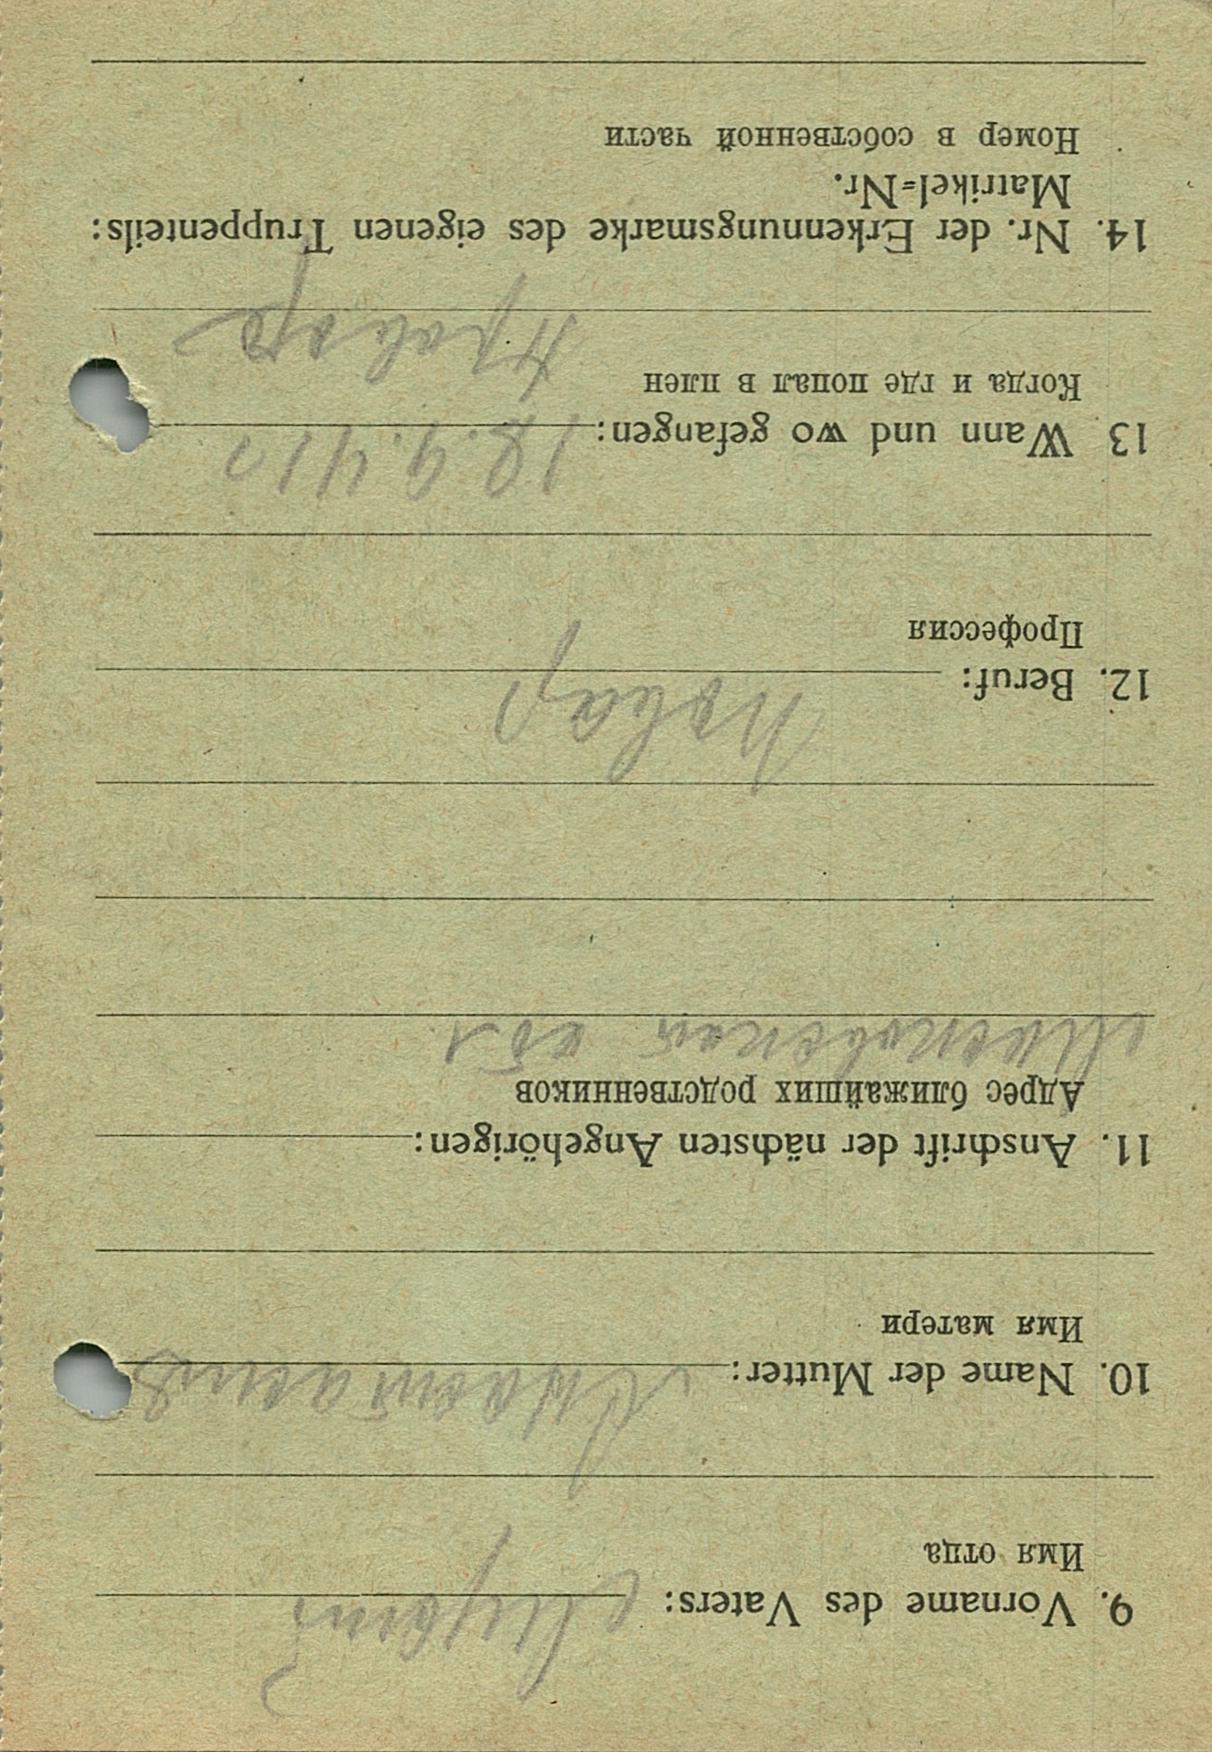 9. Vorname des Vaters:
Имя отца
10. Name der Mutter: Анастасия
Имя матери
11. Anschrift der nächsten Angehörigen:
Адрес ближайших родственников
Московская обл
12. Beruf: повар
Профессия
13 Wann und wo gefangen: 18.9.41
Когда и где попал в плен
14. Nr. der Erkennungsmarke des eigenen Truppenteils:
Matrikel=Nr.
Номер в собственной части